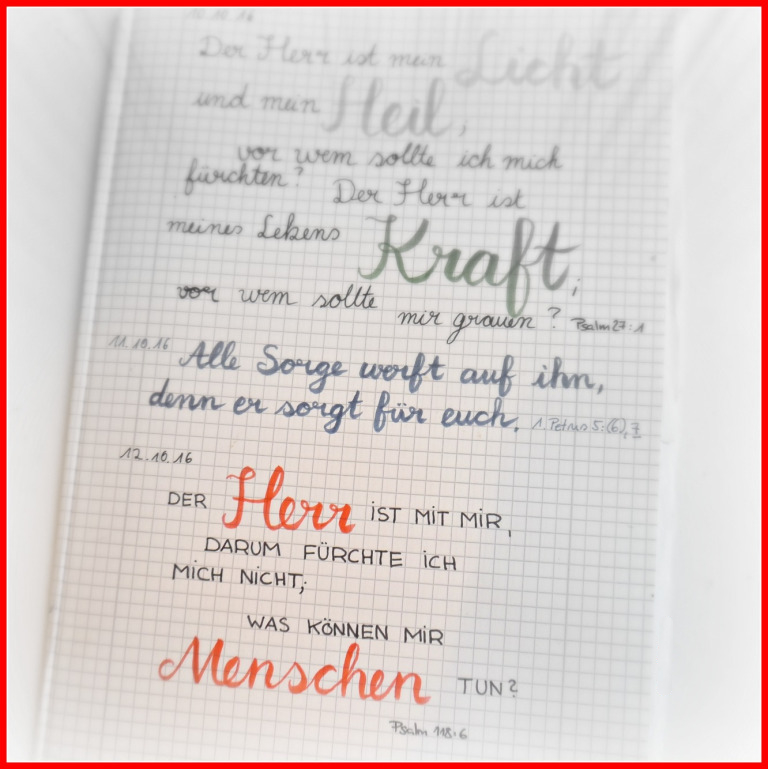 10.10.16
Der Herr ist mein Licht
und mein Heil,
vor wem sollte ich mich
fürchten? Der Herr ist
meines Lebens Kraft;
vor wem sollte
mir grauen? Psalm 27:1
11.10.16 Alle Sorge werft auf ihn,
denn er sorgt für euch. 1. Petrus 5:(6),7
12.10.16
DER Herr iST MiT MiR,
DARUM FÜRCHTE iCH
MiCH NiCHT;
WAS KÖNNEN MiR
Menschen TUN?
Psalm 118:6